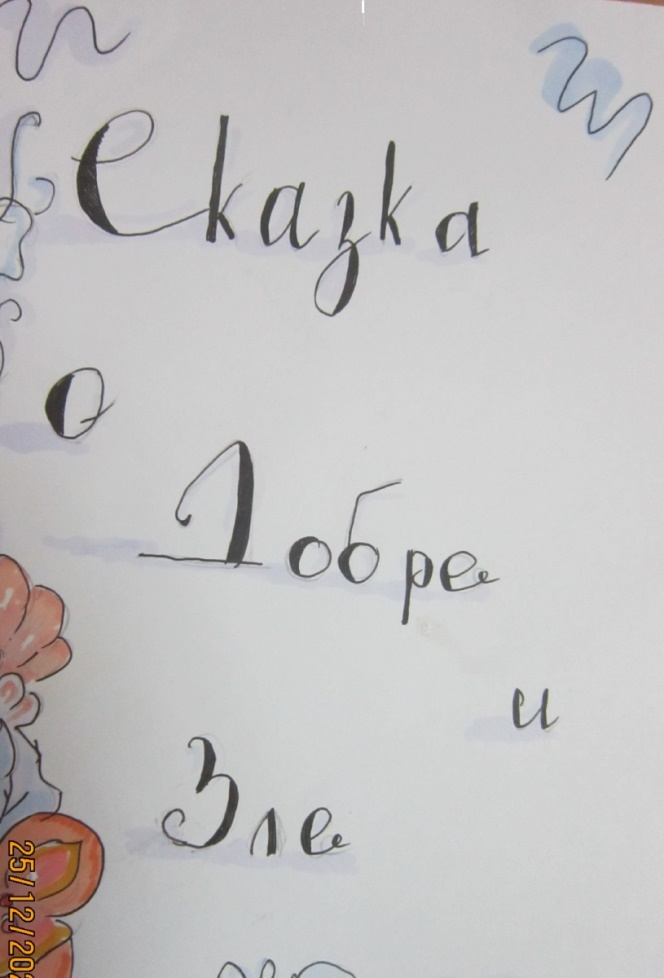 Сказка
о
Добре
и
Зле
25/12/202